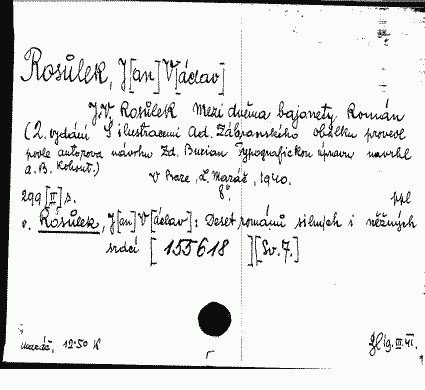 Rosůlek, J[an] V[áclav]
J.V. Rosůlek Mezi dvěma bajonety. Román
(2. vydání S ilustracemi Ad. Zábranského obálku provedl
podle autorova návrhu Zd. Burian Typografickou úpravu navrhl
a. B. Kohout.)
V Praze, L. Mazáč, 1940.
299 [II] s. 8°. ppl
v. Rosůlek, J[an] V[áclav]: Deset románů silných i něžných
srdcí [155618] [Sv. 7.]
Mazáč, 12·50 K